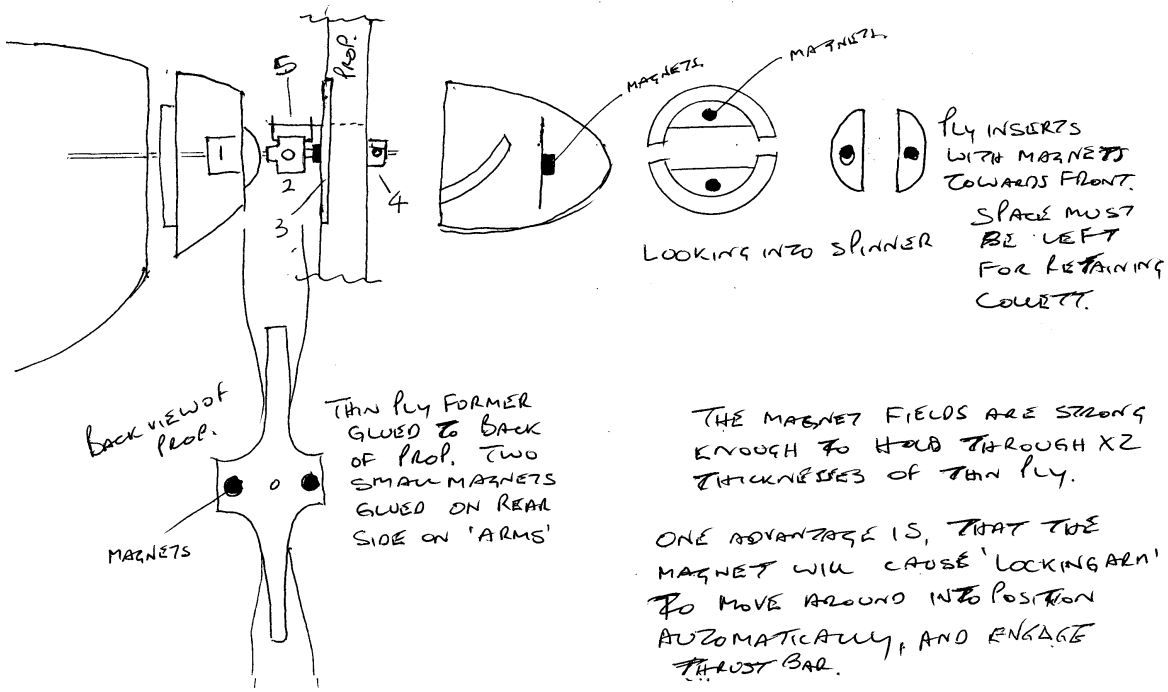 PROP.
5
1
2
3
4
MAGNETS
MAGNETS
LOOKING INTO SPINNER
PLY INSERTS
WITH MAGNETS
TOWARDS FRONT.
SPACE MUST
BE LEFT
FOR RETAINING
COLLETT.
BACK VIEW OF
PROP.
MAGNETS
THIN PLY FORMER
GLUED TO BACK
OF PROP. TWO
SMALL MAGNETS
GLUED ON REAR
SIDE ON 'ARMS'
THE MAGNET FIELDS ARE STRONG
ENOUGH TO HOLD THROUGH X2
THICKNESSES OF THIN PLY.
ONE ADVANTAGE IS, THAT THE
MAGNET WILL CAUSE 'LOCKING ARM'
TO MOVE AROUND INTO POSITION
AUTOMATICALLY, AND ENGAGE
THRUST BAR.